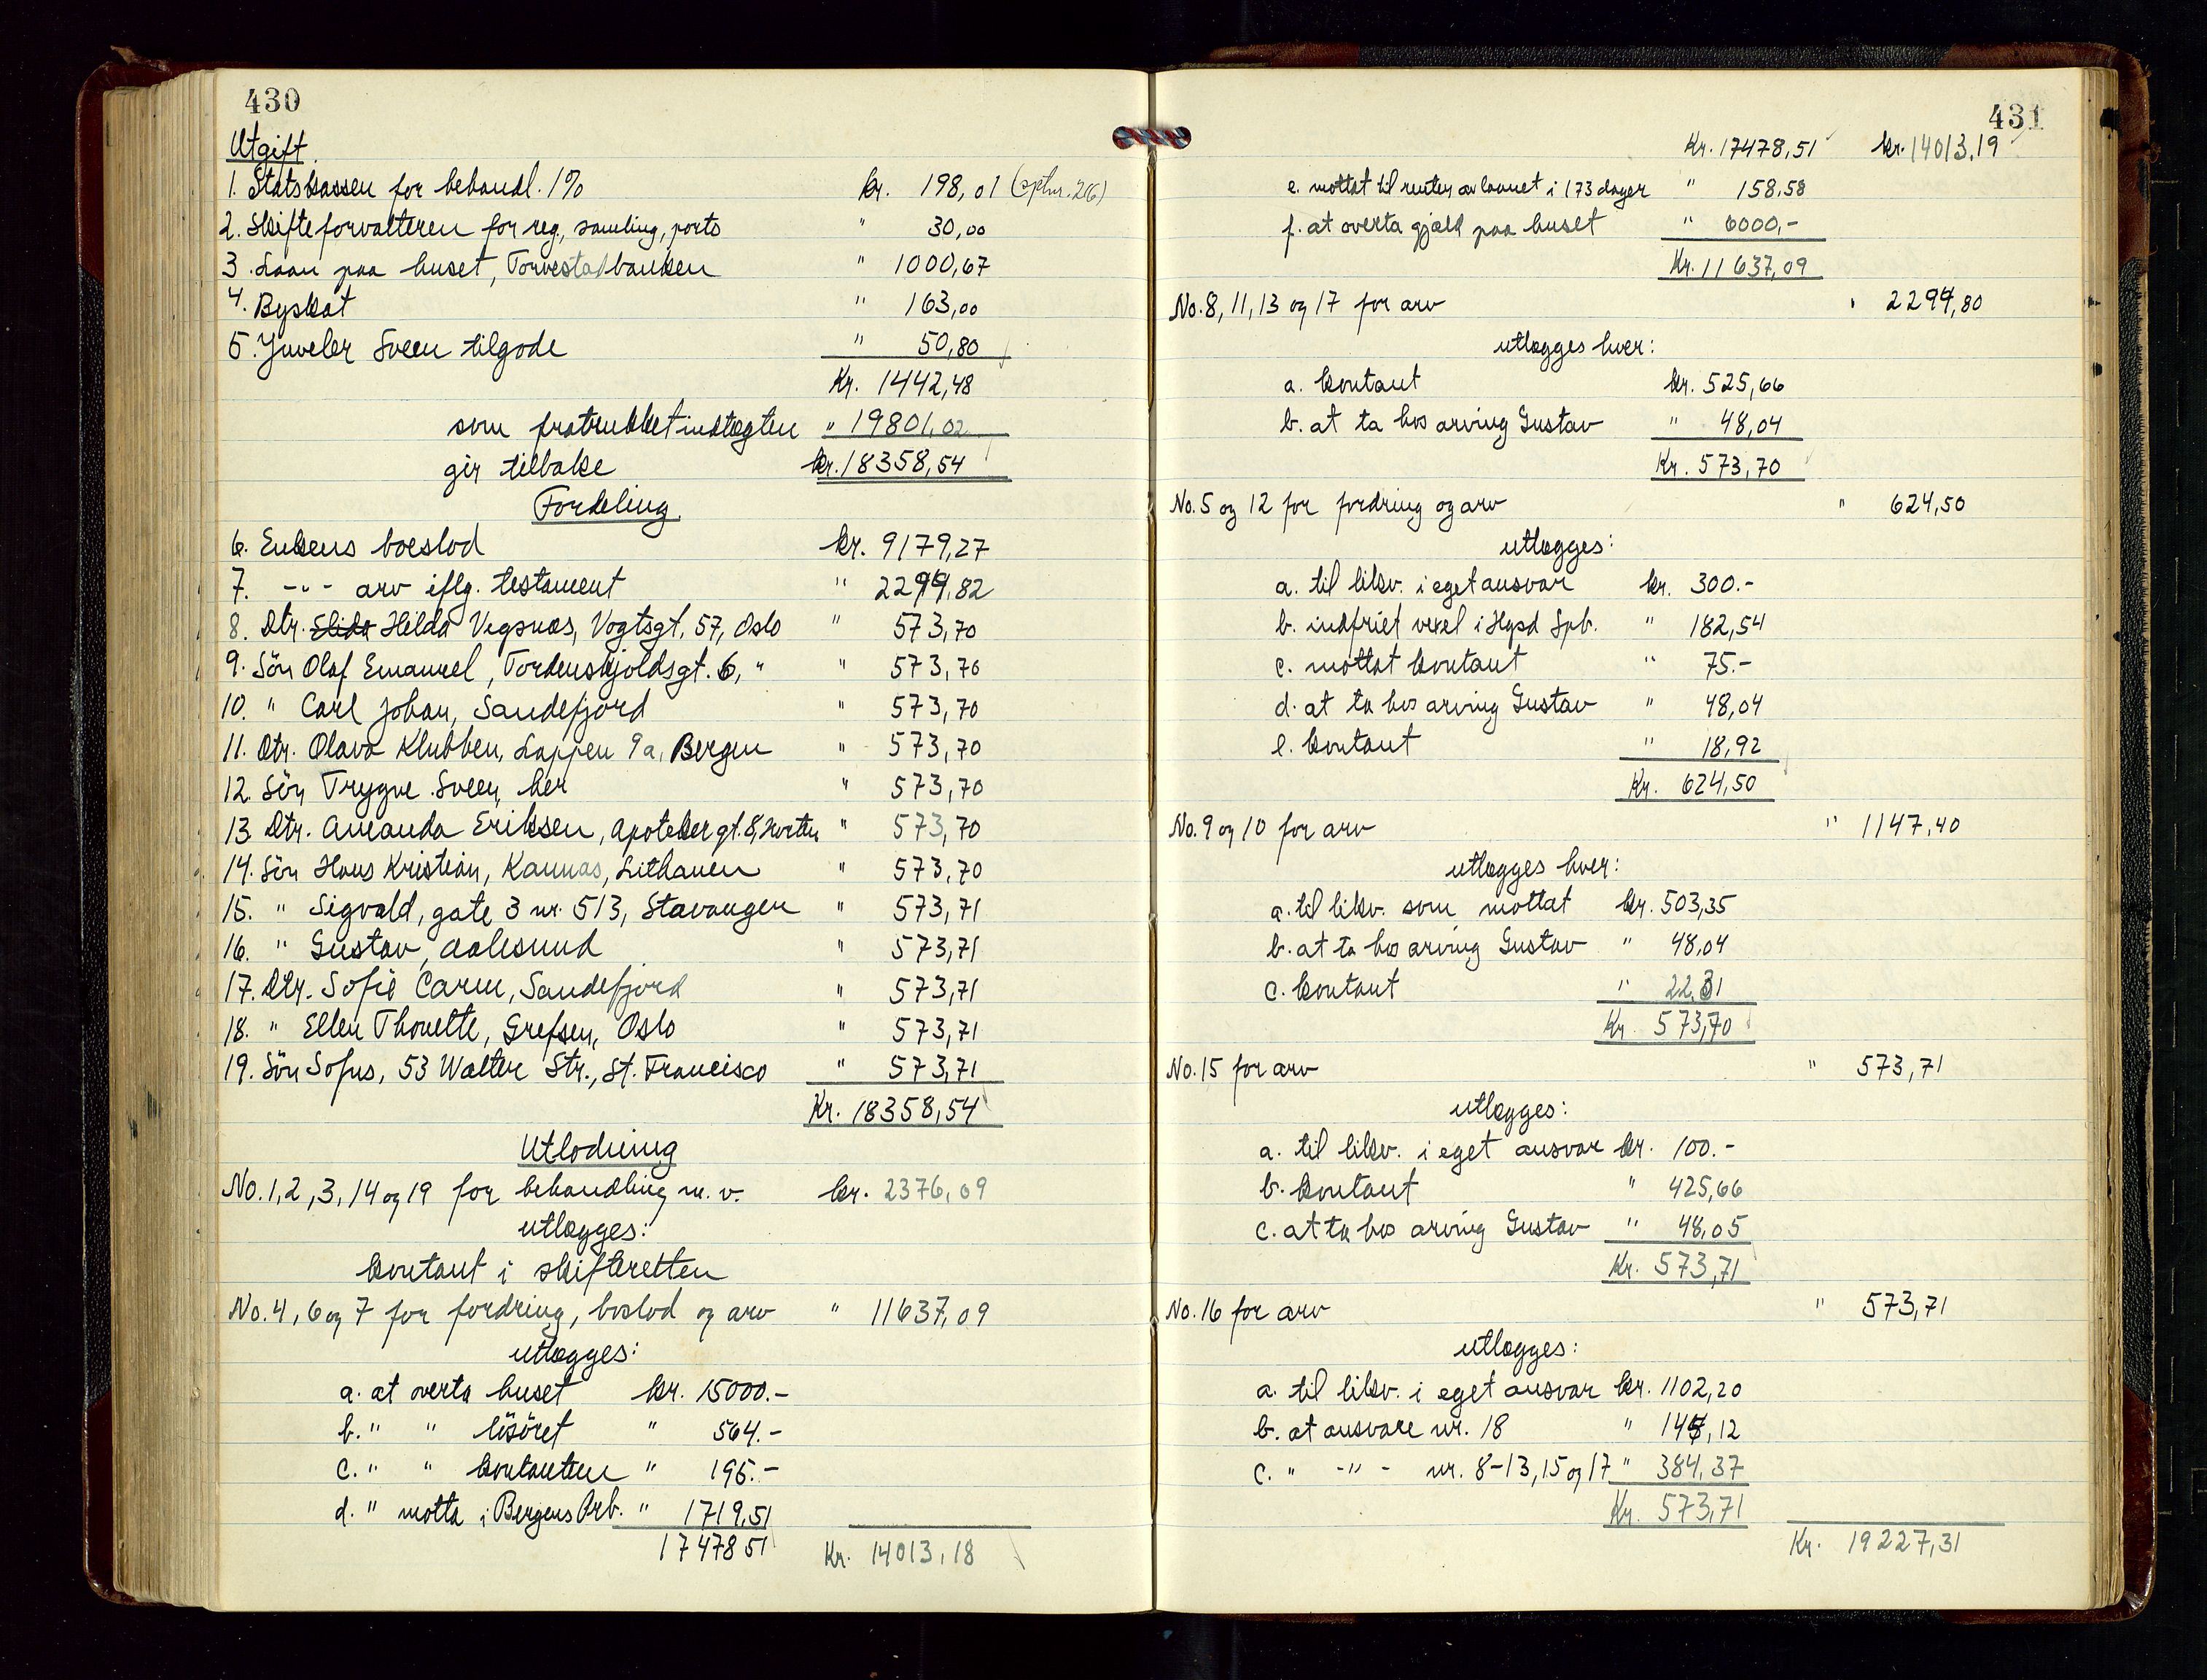 430
Utgift.
1. Statskassen for behandl. 1% kr. 198,01 (optnr. 26)
2. Skifteforvalteren for reg., samling, porto " 30,00
3. Laan paa huset, Torvestadbanken " 1000,67
4. Byskat " 163,00
5. Juveler Sveen tilgode " 50,80
Kr. 1442,48
som fratrukket indtægten " 19801,02
gir tilbake kr. 18358,54
Fordeling.
6. Enkens boeslod kr. 9179,27
7. -"- arv iflg. testament " 2294,82
8. Dtr. Elida Hilda Vegsnæs, Vogtsgt. 57, Oslo " 573,70
9. Sön Olaf Emanuel, Tordenskjoldsgt. 6, " " 573,70
10. " Carl Johan, Sandefjord " 573,70
11. Dtr. Olava Klubben, Lappen 9a, Bergen " 573,70
12. Sön Trygve Sveen, her " 573,70
13. Dtr. Amanda Eriksen, Apotekergt. 8, Horten " 573,70
14. Sön Hans Kristian, Kaunas, Lithauen " 573,70
15. " Sigvald, gate 3 nr. 513, Stavanger " 573,71
16. " Gustav, Aalesund " 573,71
17. Dtr. Sofie Carm, Sandefjord " 573,71
18. " Ellen Thouette, Grefsen, Oslo " 573,71
19. Sön Sofus, 53 Walter Str., St. Francisco " 573,71
Kr. 18358,54
Utlodning
No. 1, 2, 3, 14 og 19 for behandling m. v. kr. 2376,09
utlægges:
kontant i skifteretten
No. 4, 6 og 7 for fordring, boslod og arv " 11637,09
utlægges:
a. at overta huset kr. 15000.-
b. " " lösöret " 564.-
c. " " kontanten " 195.-
d. " motta i Bergens Prb. " 1719,51
17478 51 Kr. 14013,18
431
Kr. 17478,51 kr. 14013,19
e. mottat til renter av laanet i 173 dager " 158,58
f. at overta gjæld paa huset " 6000,-
Kr. 11637,09
No. 8, 11, 13 og 17 for arv " 2294,80
utlægges hver:
a. kontant kr. 525,66
b. at ta hos arving Gustav " 48,04
Kr. 573,70
No. 5 og 12 for fordring og arv " 624,50
utlægges:
a. til likv. i eget ansvar kr. 300.-
b. indfriet vexel i Hgsd Spb. " 182,54
c. mottat kontant " 75.-
d. at ta hos arving Gustav " 48,04
e. kontant " 18,92
Kr. 624,50
No. 9 og 10 for arv " 1147,40
utlægges hver:
a. til likv. som mottat kr. 503,35
b. at ta hos arving Gustav " 48,04
c. kontant " 22,31
Kr. 573,70
No. 15 for arv " 573,71
utlægges:
a. til likv. i eget ansvar kr. 100.-
b. kontant " 425,66
c. at ta hos arving Gustav " 48,05
Kr. 573,71
No. 16 for arv " 573,71
utlægges:
a. til likv. i eget ansvar kr. 1102,20
b. at ansvare nr. 18 " 144,12
c. " -"- nr. 8-13, 15 og 17 " 384,37
Kr. 573,71
Kr. 19227,31